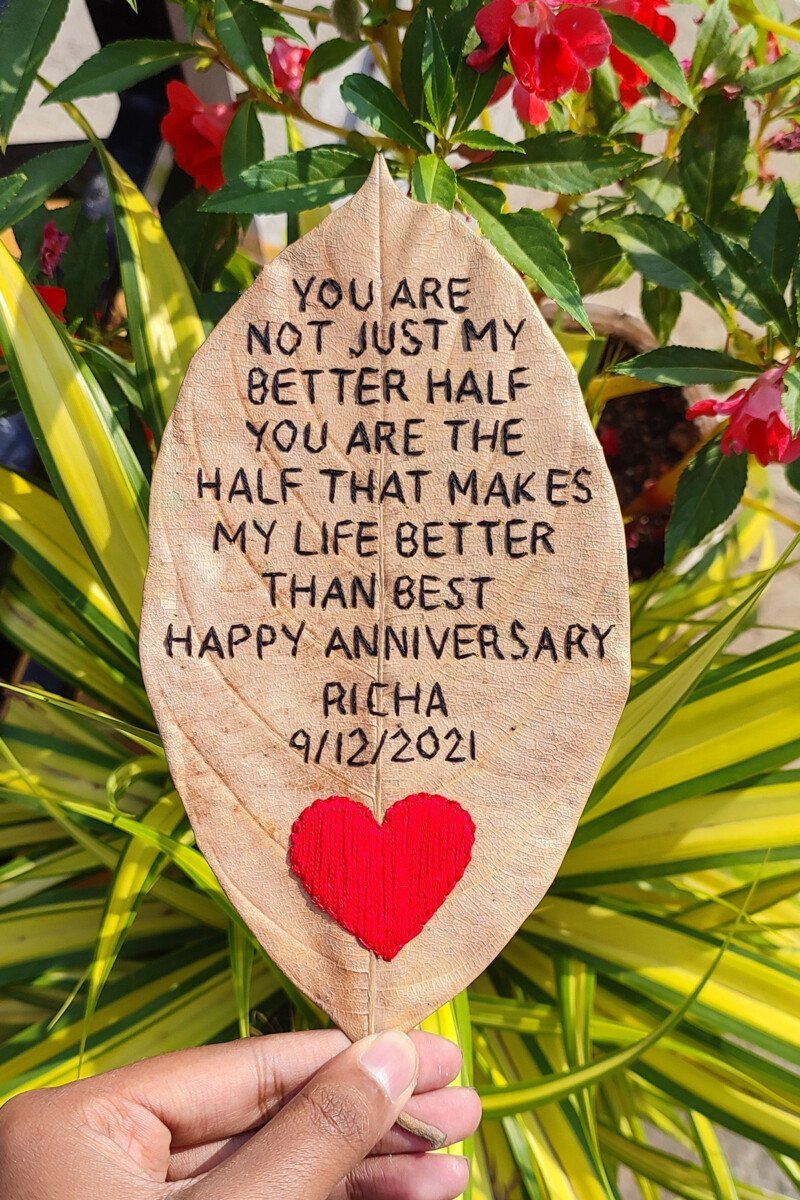 YOU ARE
NOT JUST MY
BETTER HALF
YOU ARE THE
HALF THAT MAKES
MY LIFE BETTER
THAN BEST
HAPPY ANNIVERSARY
RICHA
9/12/2021